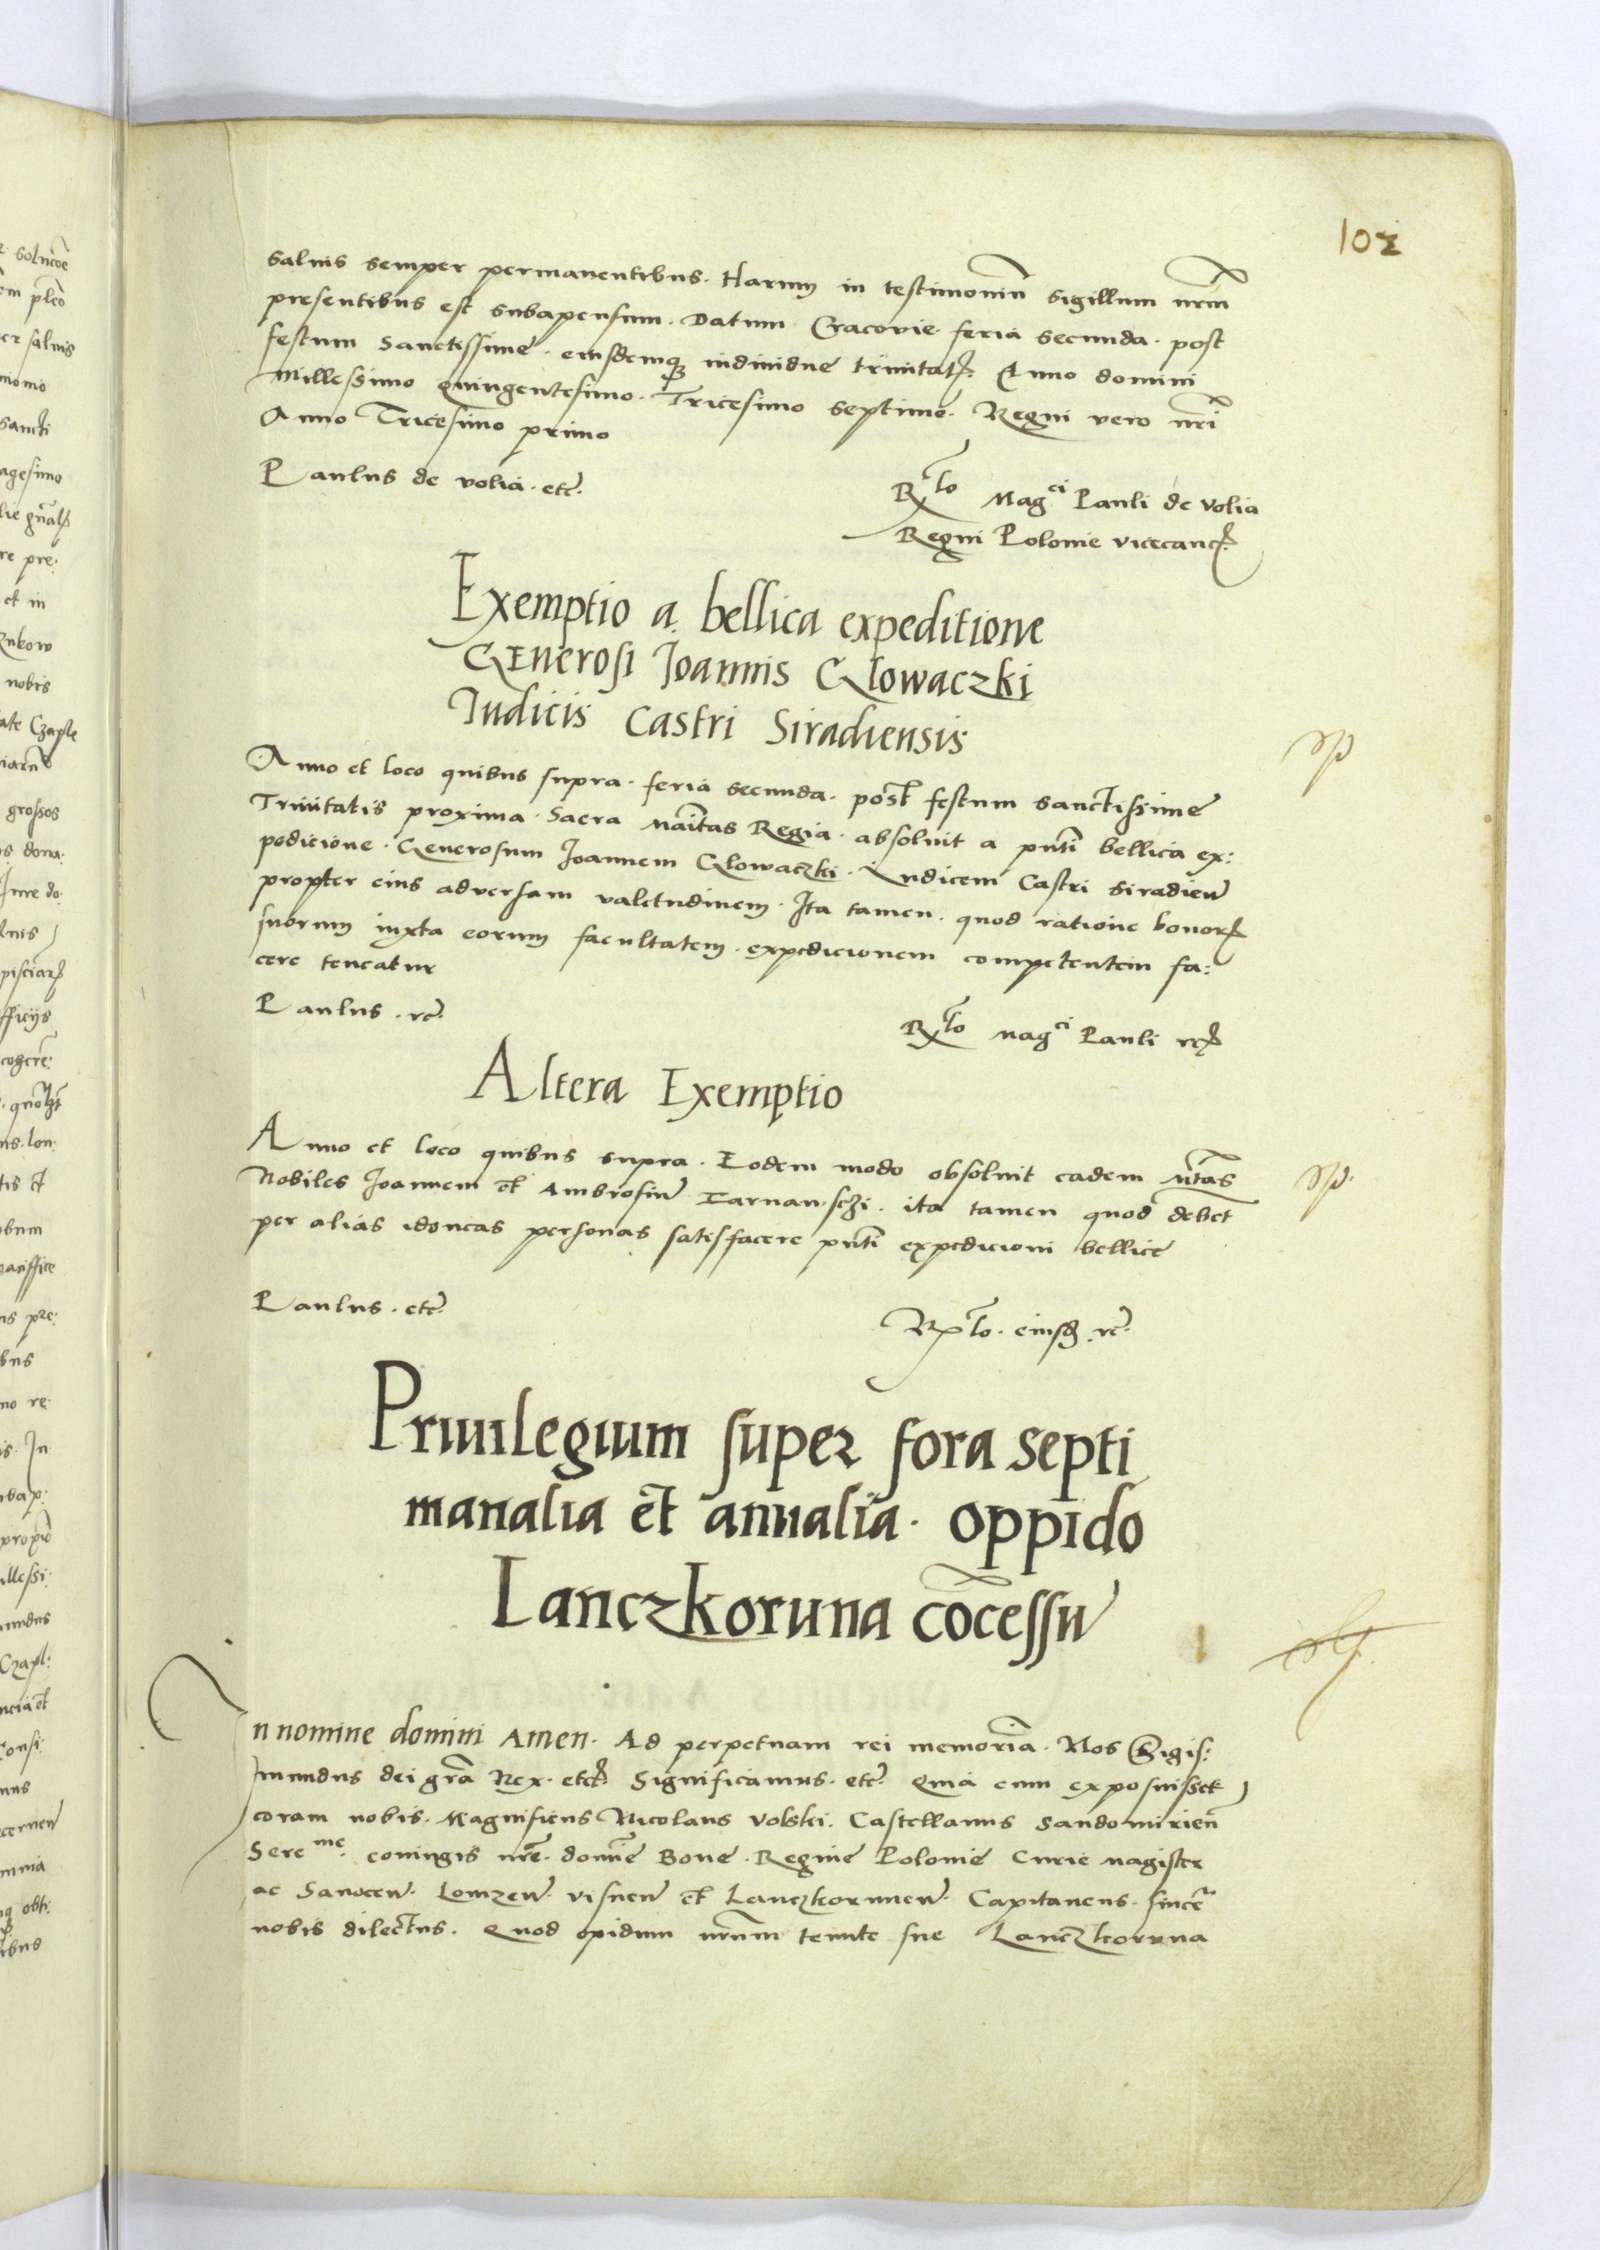 102
salvis semper permanentibus. Harum in testimoniu sigillum nrm
presentibus est subapensum. Datum Cracovie feria secunda. post
festum Sanctissime. eiusdemq individue trinitat. Anno domini
Millessimo quingentesimo. Tricesimo septimo. Regni vero nri
Anno Tricesimo primo
Paulus de volia. etc.
Rlo Magci Pauli de volia
Regni Polonie vicecanc
Exemptio a bellica expeditione
Generosi Joannis Glowaczki
Iudicis Castri Siradiensis
Anno et loco quibus supra. feria secunda. post festum sanctissime
Trinitatis proxima. Sacra Maitas Regia. absolvit a pnti bellica ex:
pedicione. Generosum Joannem Glowaczki. Iudicem Castri siradien
propter eius adversam valetudinem. Ita tamen. quod ratione bonor
suorum iuxta eorum facultatem. expedicionem competentem fa:
cere teneatur
Paulus. rc.
Rlo Magci Pauli rc
Altera Exemptio
Anno et loco quibus supra. Eodem modo absolvit eadem Mtas
Nobiles Joannem et Ambrosiu. ita tamen quod debet
per alias idoneas personas satisfacere pnti expedicioni bellice
Paulus. etc.
Rlo. eiusd. rc.
Privilegium super fora septi
manalia et annalia. oppido
Lanczkoruna cocessu
n nomine domini Amen. Ad perpetuam rei memoria. Nos Sigis:
mundus dei gra Rex. etc. Significamus. etc. Quia cum exposuisset
coram nobis. Magnificus Nicolaus volski. Castellanus Sandomirien
Sereme. coniugis nre. domine Bone. Regine Polonie Curie Magister
ac Sanocen. Lomzen. visnen et Lanczkorunen. Capitaneus. sincer
nobis dilectus. Quod opidum nrum tenute sue Lanczkoruna